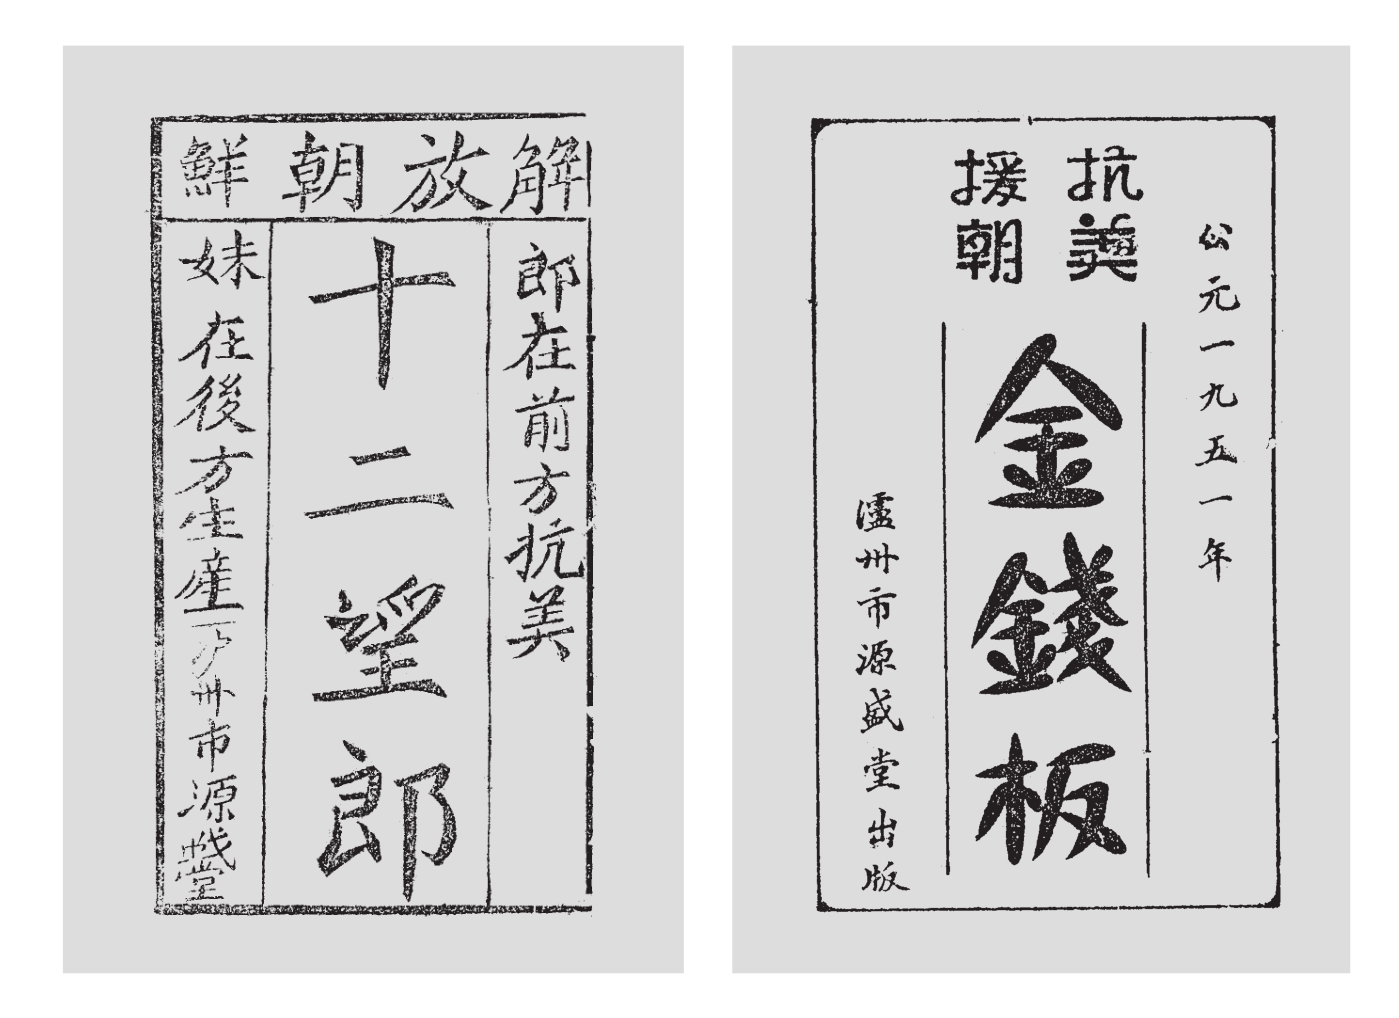 解放朝鮮
郎在前方抗美
十二望郎
妹在後方生產
州市源盛堂
公元一九五一年
抗美
援朝
金錢板
瀘州市源盛堂出版